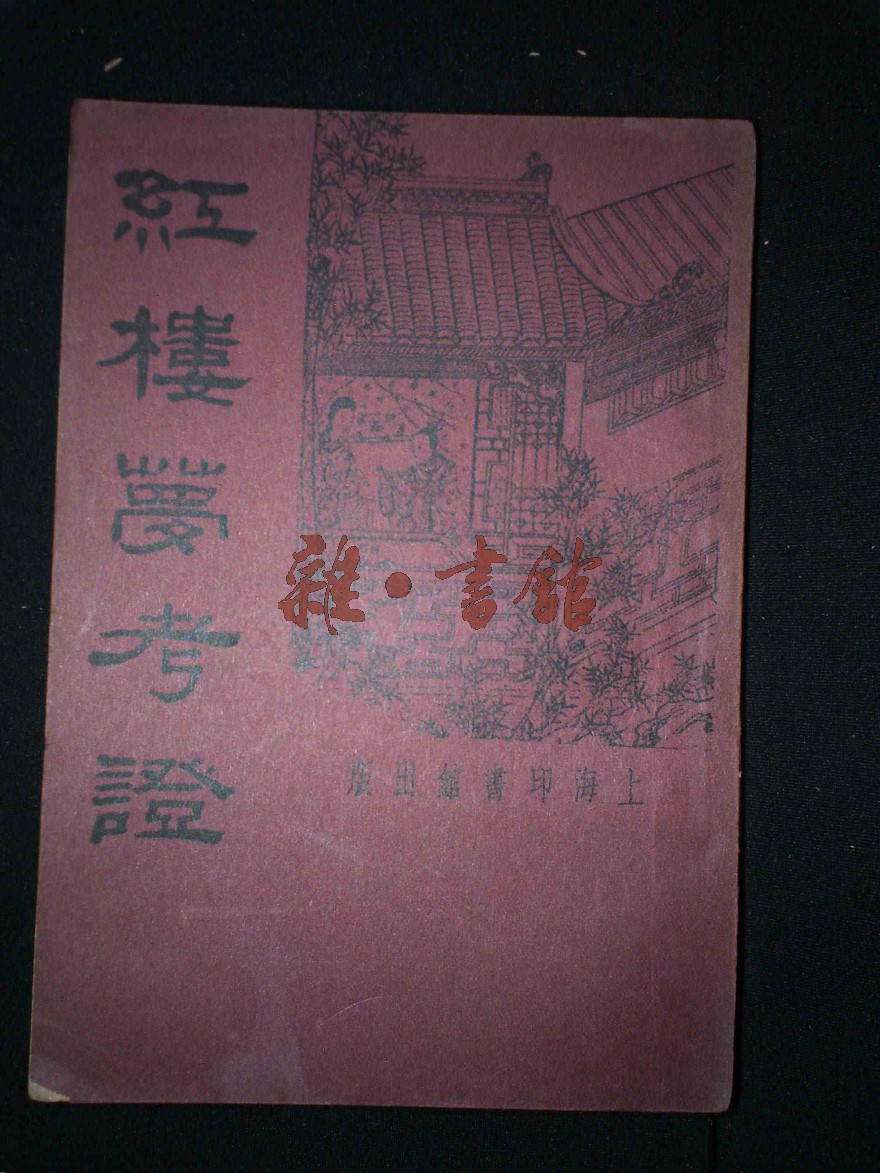 紅樓夢考證
雜·書館
上海印書館出版